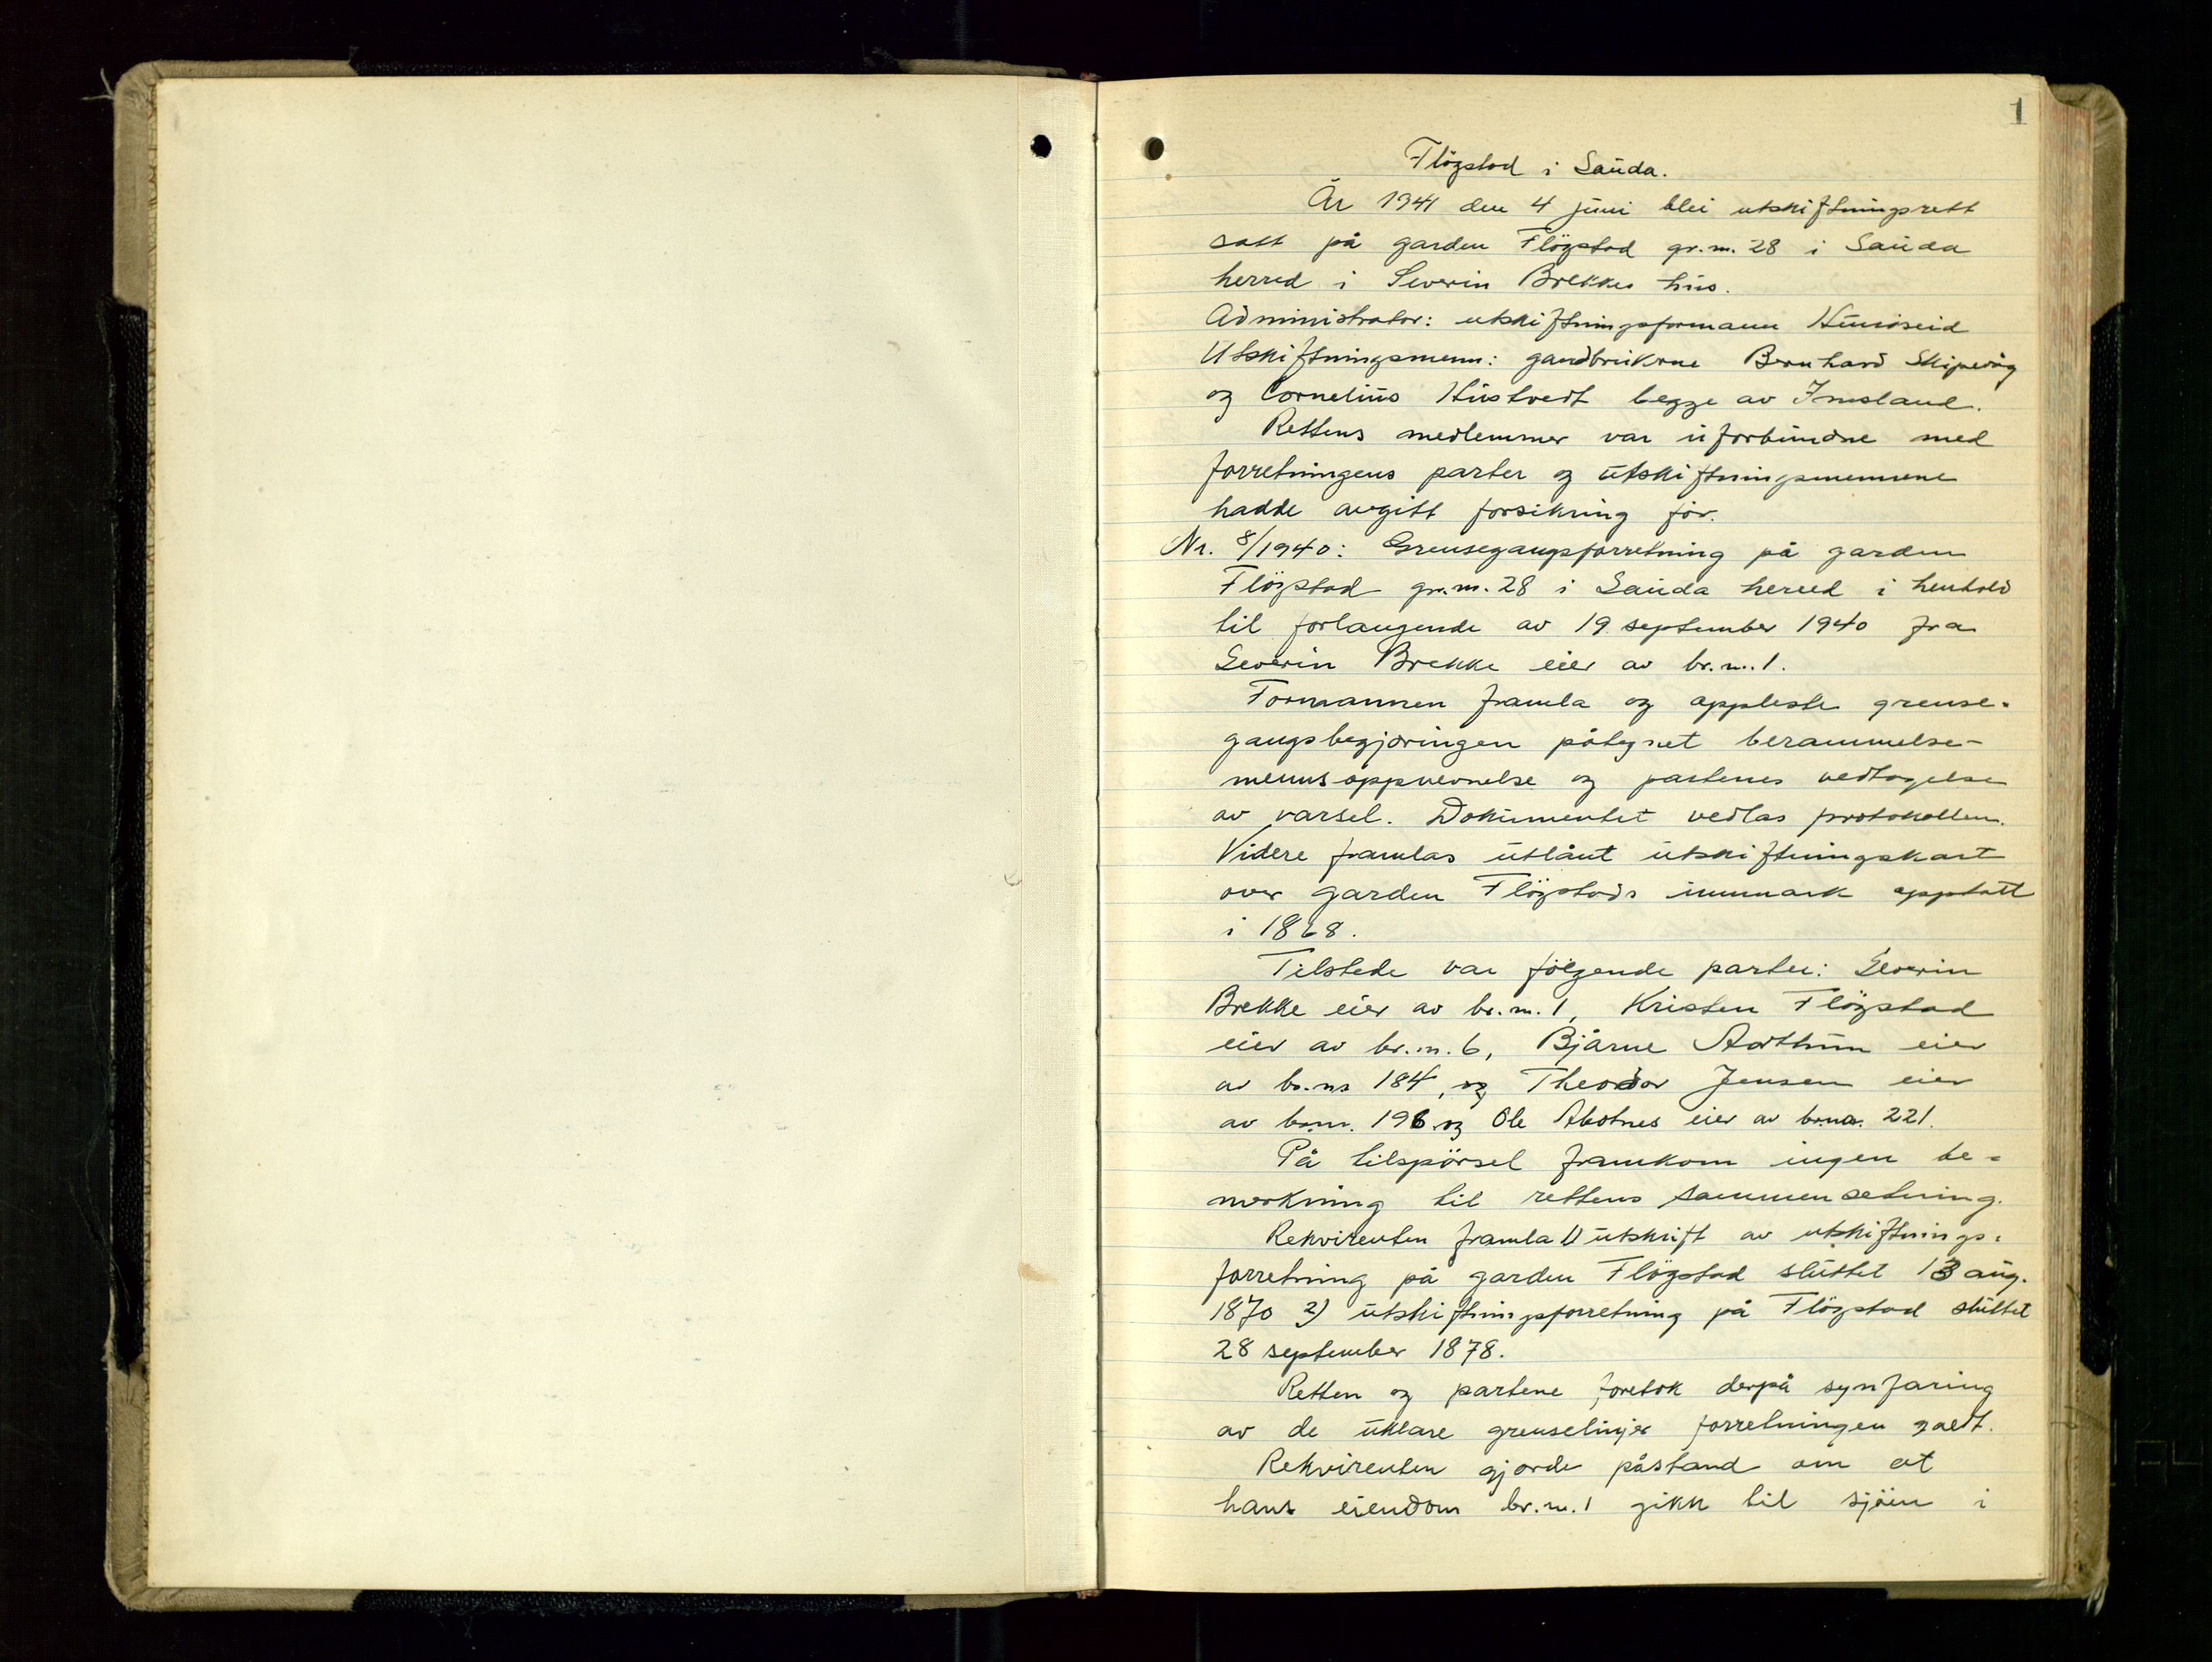 1
Flögstad i Sauda.
År 1941 den 4 juni blei utskiftningsrett
satt på garden Flögstad gr.nr. 28 i Sauda
herred i Severin Brekkes hus.
Administrator: utskiftningsformann
Utskiftningsmenn: gardbrukerne Bernhard Skipevåg
og Cornelius Hustvedt begge av Imsland.
Rettens medlemmer var uforbundne med
forretningens parter og utskiftningsmennene
hadde avgitt forsikring för.
Nr. 8/1940: Grensegangsforretning på garden
Flögstad gr.nr. 28 i Sauda herred i henhold
til forlangende av 19 september 1940 fra
Severin Brekke eier av br.nr. 1.
Formannen framla og oppleste grense-
gangsbegjæringen påtegnet berammelse-
mennsoppnevnelse og partenes vedtagelse
av varsel. Dokumentet vedlas protokollen.
Videre framlas utlånt utskiftningskart
over garden Flögstads innmark opptatt
i 1868.
Tilstede var fölgende parter: Severin
Brekke eier av br.nr. 1, Kristen Flögstad
eier av br.nr. 6, Bjarne Aarthun eier
av br.nr 184, og Theodor Jensen eier
av br.nr. 196 og Ole eier av br.nr. 221.
På tilspörsel framkom ingen be-
merkning til rettens sammensetning.
Rekvirenten framla 1) utskrift av utskiftnings-
forretning på garden Flögstad sluttet 13 aug.
1870 2) utskiftningsforretning på Flögstad sluttet
28 september 1878.
Retten og partene foretok derpå synfaring
av de uklare grenselinjer forretningen galdt.
Rekvirenten gjorde påstand om at
hans eiendom br.nr. 1 gikk til sjöen i